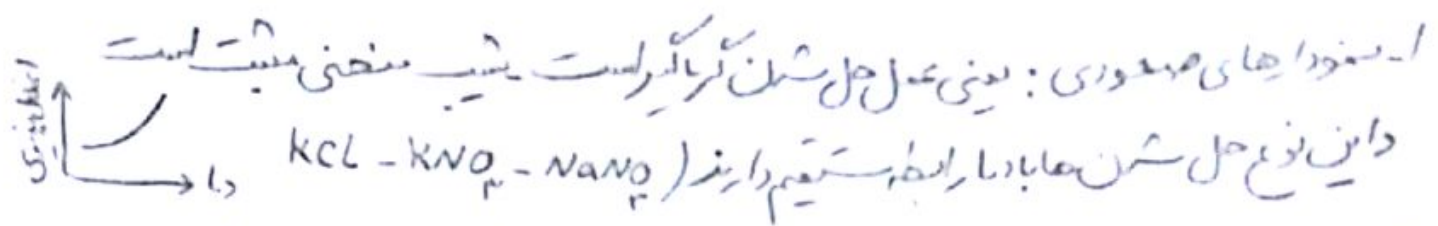 ۱- نمودارهای صعودی : یعنی عمل حل شدن گرماگیر است شیب منحنی مثبت است
و این نوع حل شدن ها با دما رابطه مستقیم دارند ( KCl - KNO₃ - NaNO₃
دما